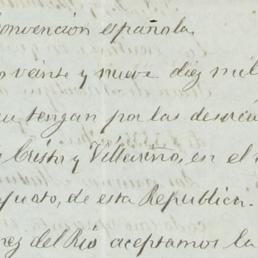 Convención española.
veinte y nueve diez mil
tengan por las
Cristo y Villarino, en el
de esta Republica.
del Rio aceptamos la